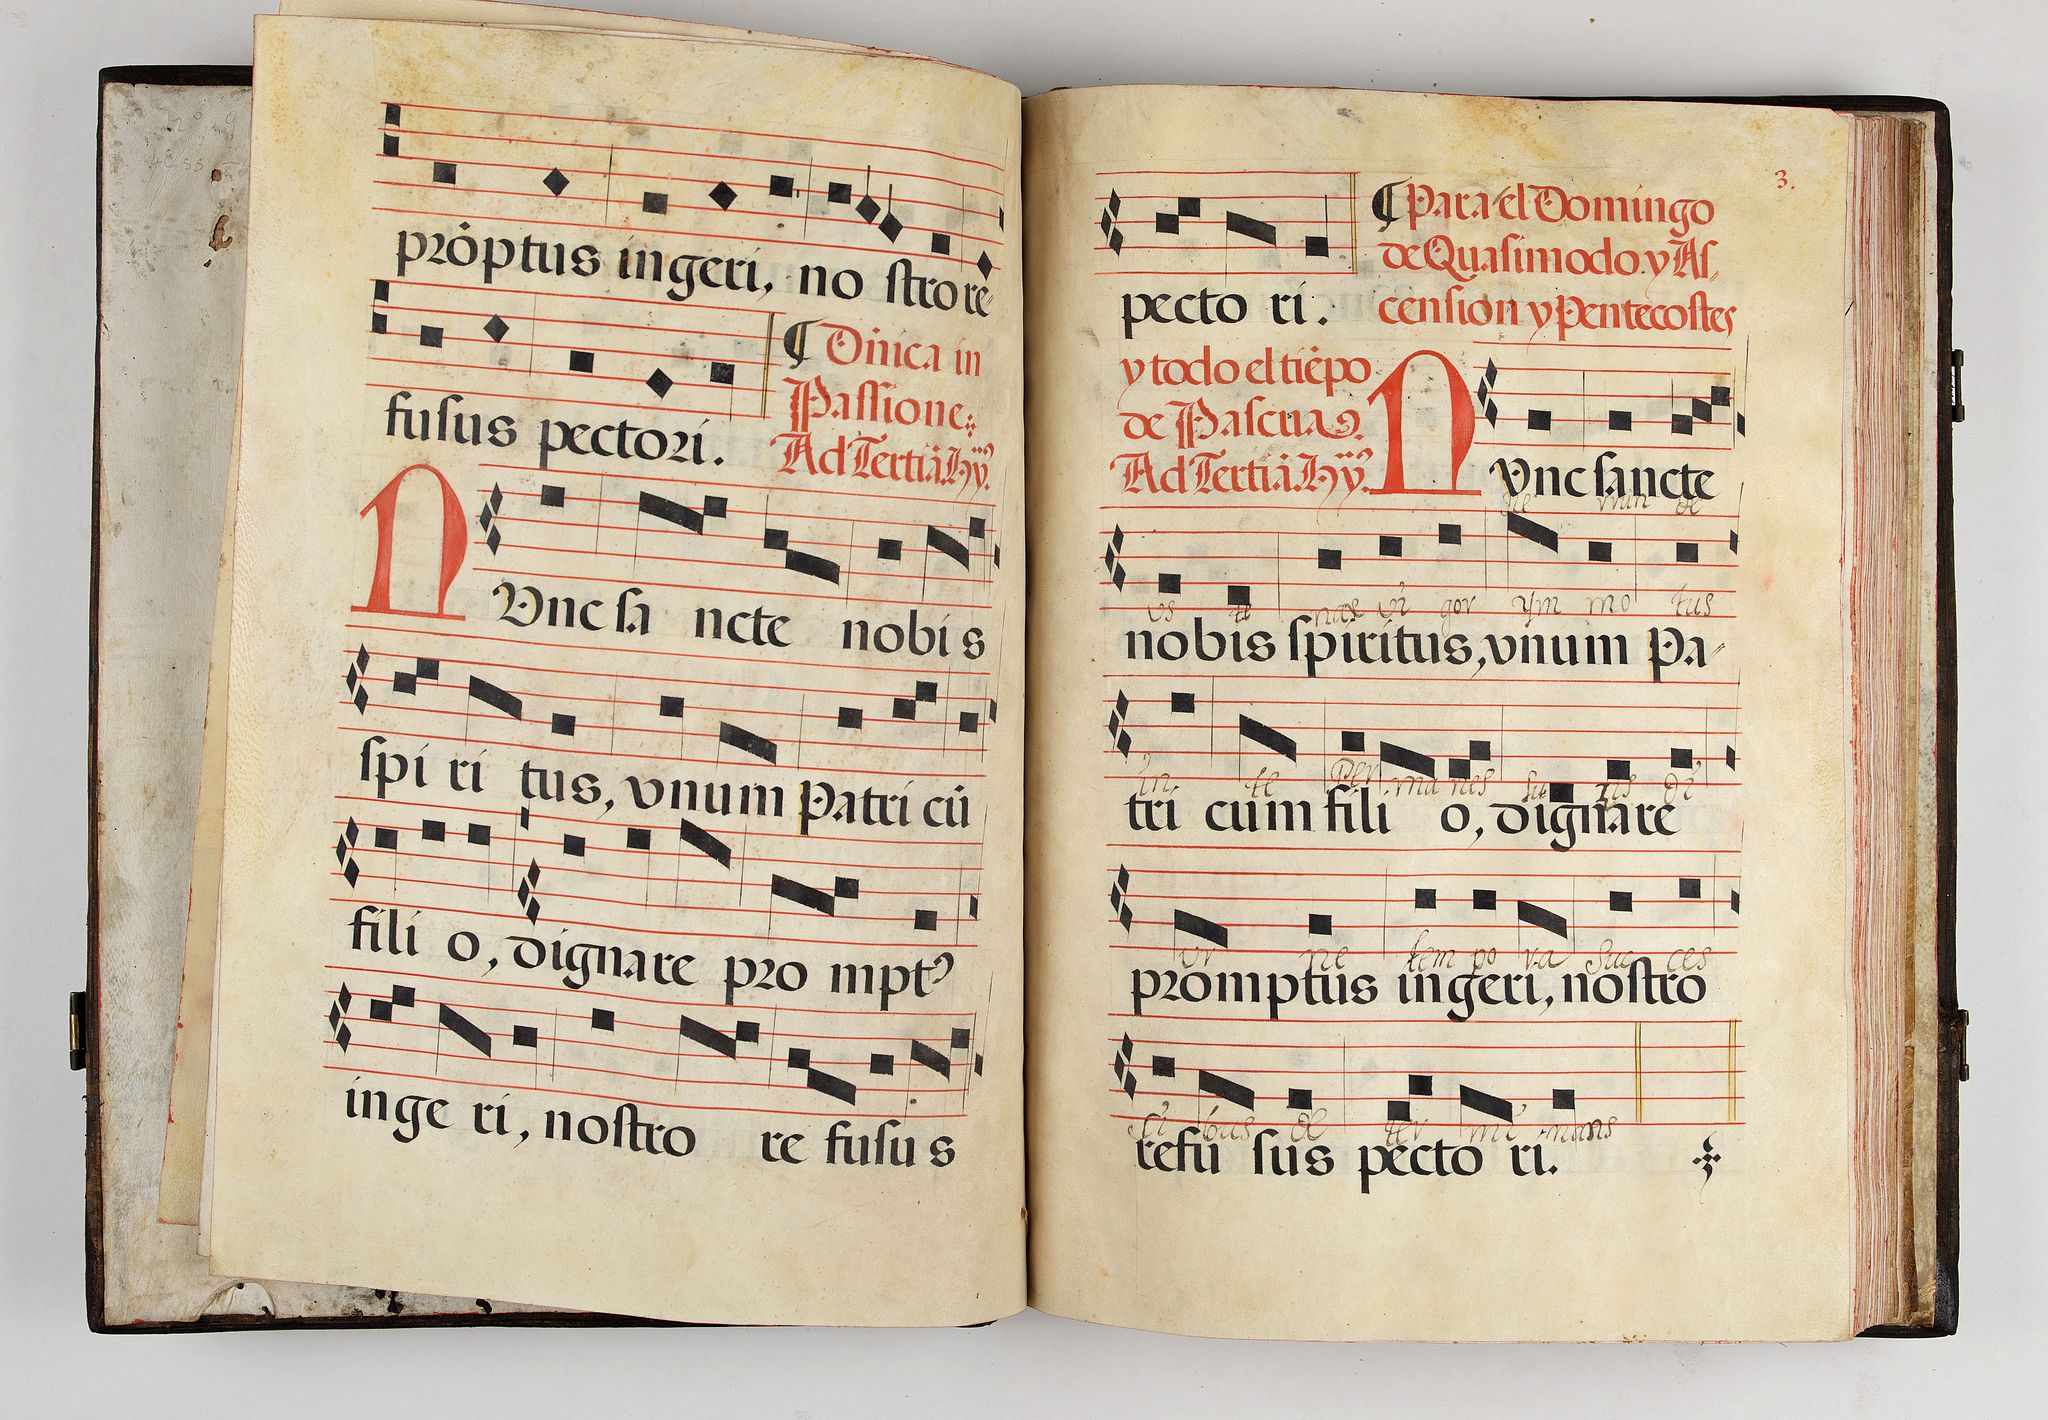 prõptus ingeri, no stro re-
fusus pectori.
¶ Dñica in
Passione:
Ad Tertiã. Hỹ.
NVnc sa ncte nobis
spi ri tus, vnum Patri cũ
fili o, dignare pro mptꝰ
inge ri, nostro re fusus
3.
pecto ri.
¶ Para el Domingo
de Quasimodo y As-
cension y Pentecostes
y todo el tiẽpo
de Pascua.
Ad Tertiã. Hỹ.
NVnc sancte
nobis spiritus, vnum Pa-
us te nax vi gor ym mo tus
tri cum fili o, dignare
in te per ma nes
promptus ingeri, nostro
ne tem po ra suc ces
refu sus pecto ri.
si bus de ter mi nans